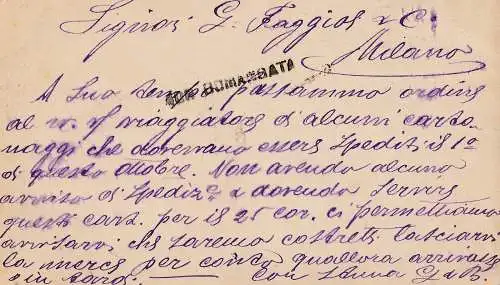 Signori G. Faggios & C.
Milano
NON DOMANDATA
A Suo tempo passammo ordine
al vs. viaggiatore d'alcuni carto-
naggi che dovevano essere spediti il 1º
di questo ottobre. Non avendo alcuno
avviso di spedizº e dovendo servire
questi cart. per il 25 cor. ci permettiamo
avvisarvi che saremo costretti lasciarvi
la merce per conto quallora arrivasse
in tardi. con stima G & B.